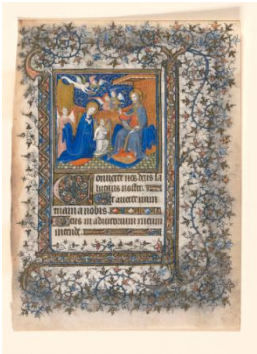 Converte nos deus sa
lutaris noster.
Et averte iram
tuam a nobis
Deus in adiutorium meum
intende.